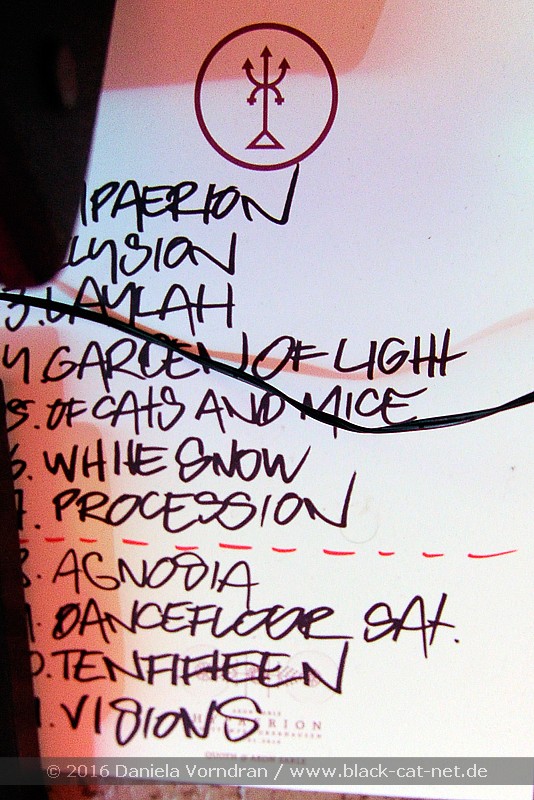 IPAERION
LYSION
3. LAYLAH
4. GARDEN OF LIGHT
5. OF CATS AND MICE
6. WHITE SNOW
7. PROCESSION
8. AGNOSIA
9. DANCEFLOOR SAT.
0. TENFIFTEEN
1. VISIONS
ERION
© 2016 Daniela Vorndran / www.black-cat-net.de